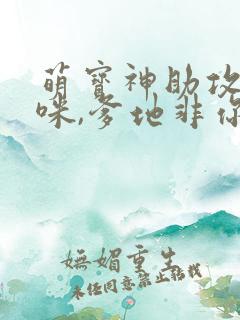 萌宝神助攻
咪,爹地非你
妩媚重生
未经同意禁止转载